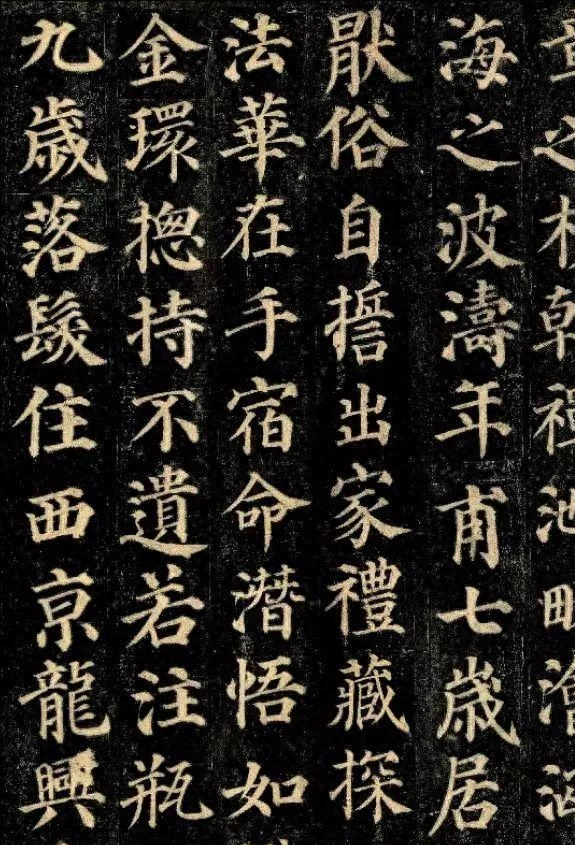 章之禪池畎澮
海之波濤年甫七歲居
猒俗自誓出家禮藏探
法華在手宿命潛悟如
金環揔持不遺若注瓶
九歲落髮住西亰龍興